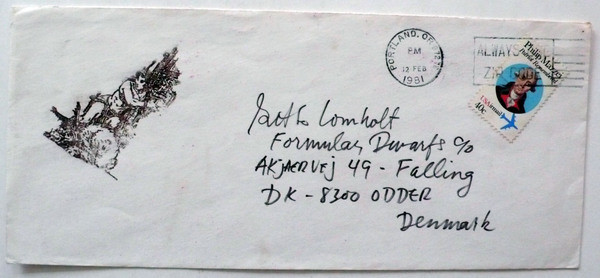 PORTLAND, OR
PM
12 FEB
1981
ALWAYS
ZIP CODE
Philip Mazzei
Patriot Remembered
USAirmail
40c
Lomholt
Formular Dwarfs c/o
AKJÆRVEJ 49 - Falling
DK - 8300 ODDER
Denmark